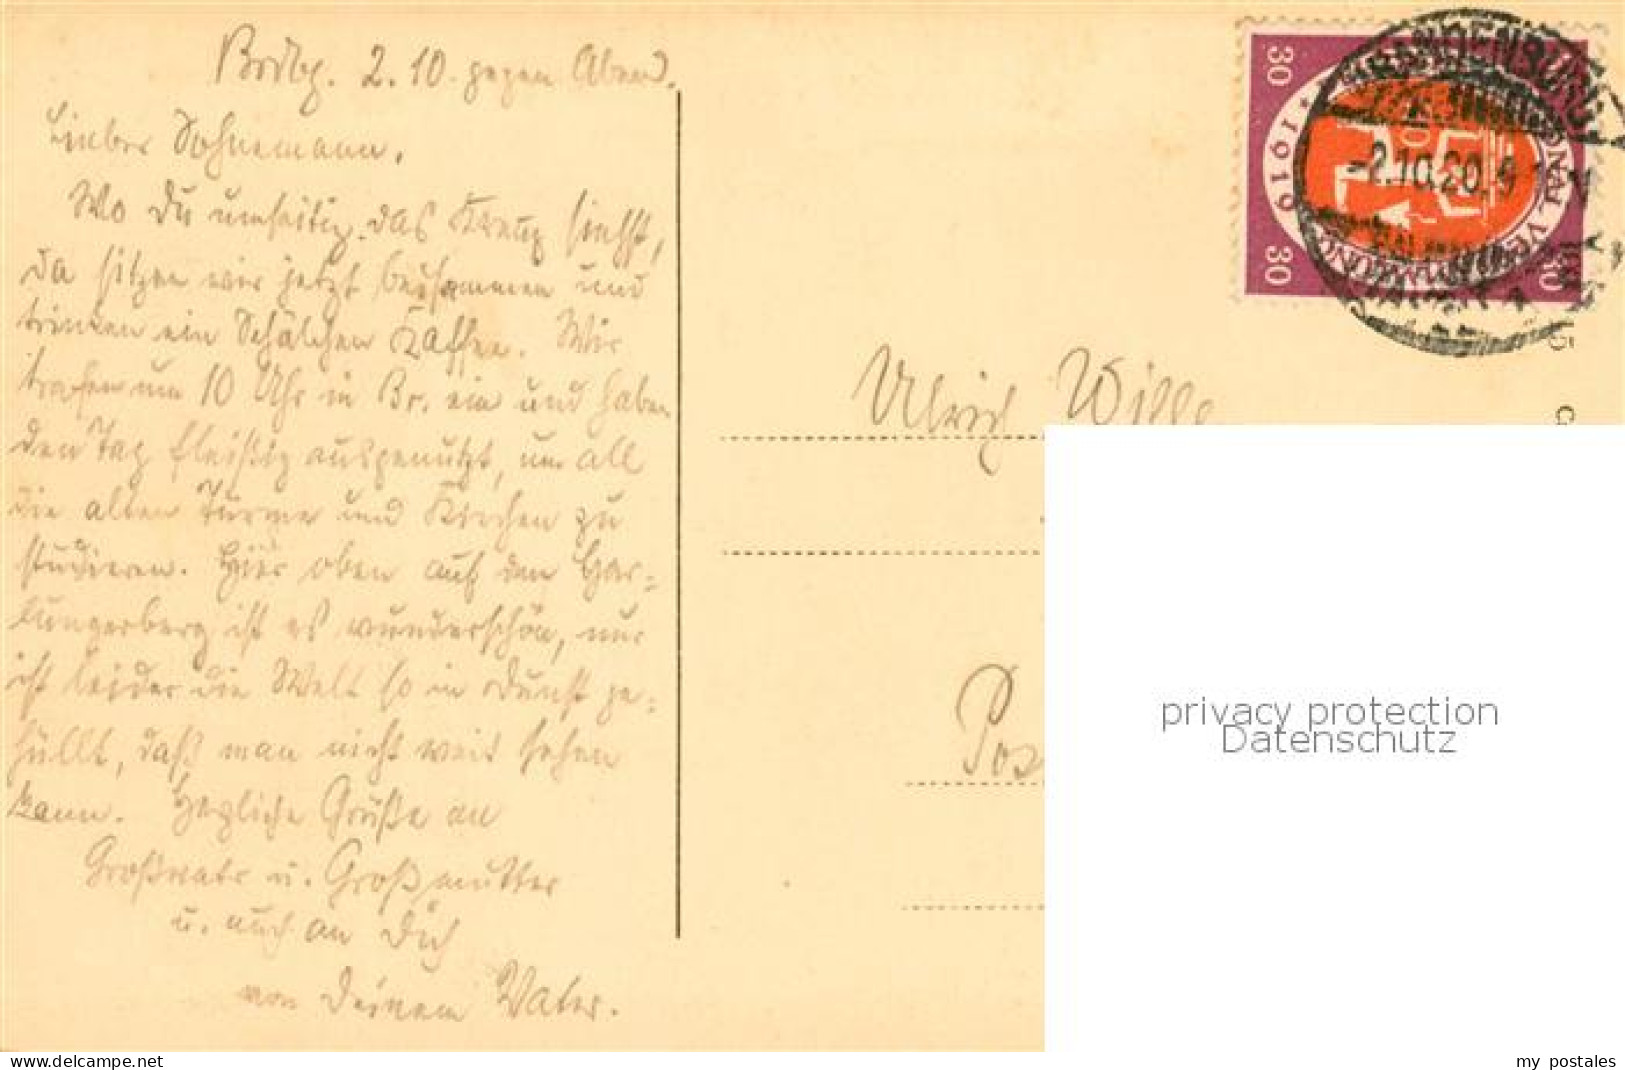 Brdbg. 2.10. gegen Abend.
Lieber Sohnemann.
Wo Du umseitig das Kreuz siehst,
da sitzen wir jetzt beisammen und
trinken ein Schälchen Kaffee. Wir
trafen um 10 Uhr in Br. ein und haben
den Tag fleißig ausgenutzt, um all
die alten Türme und Kirchen zu
studieren. Hier oben auf dem Har-
lungerberg ist es wunderschön, nur
ist leider die Welt so in Dunst ge-
hüllt, daß man nicht weit sehen
kann. Herzliche Grüße an
Großvater u. Großmutter
u. auch an Dich
von Deinem Vater.
Ulrich Wille
Pos
BRANDENBURG
-2.10.20.9
30 30
* 1919
30
privacy protection
Datenschutz
www.delcampe.net
my_postales